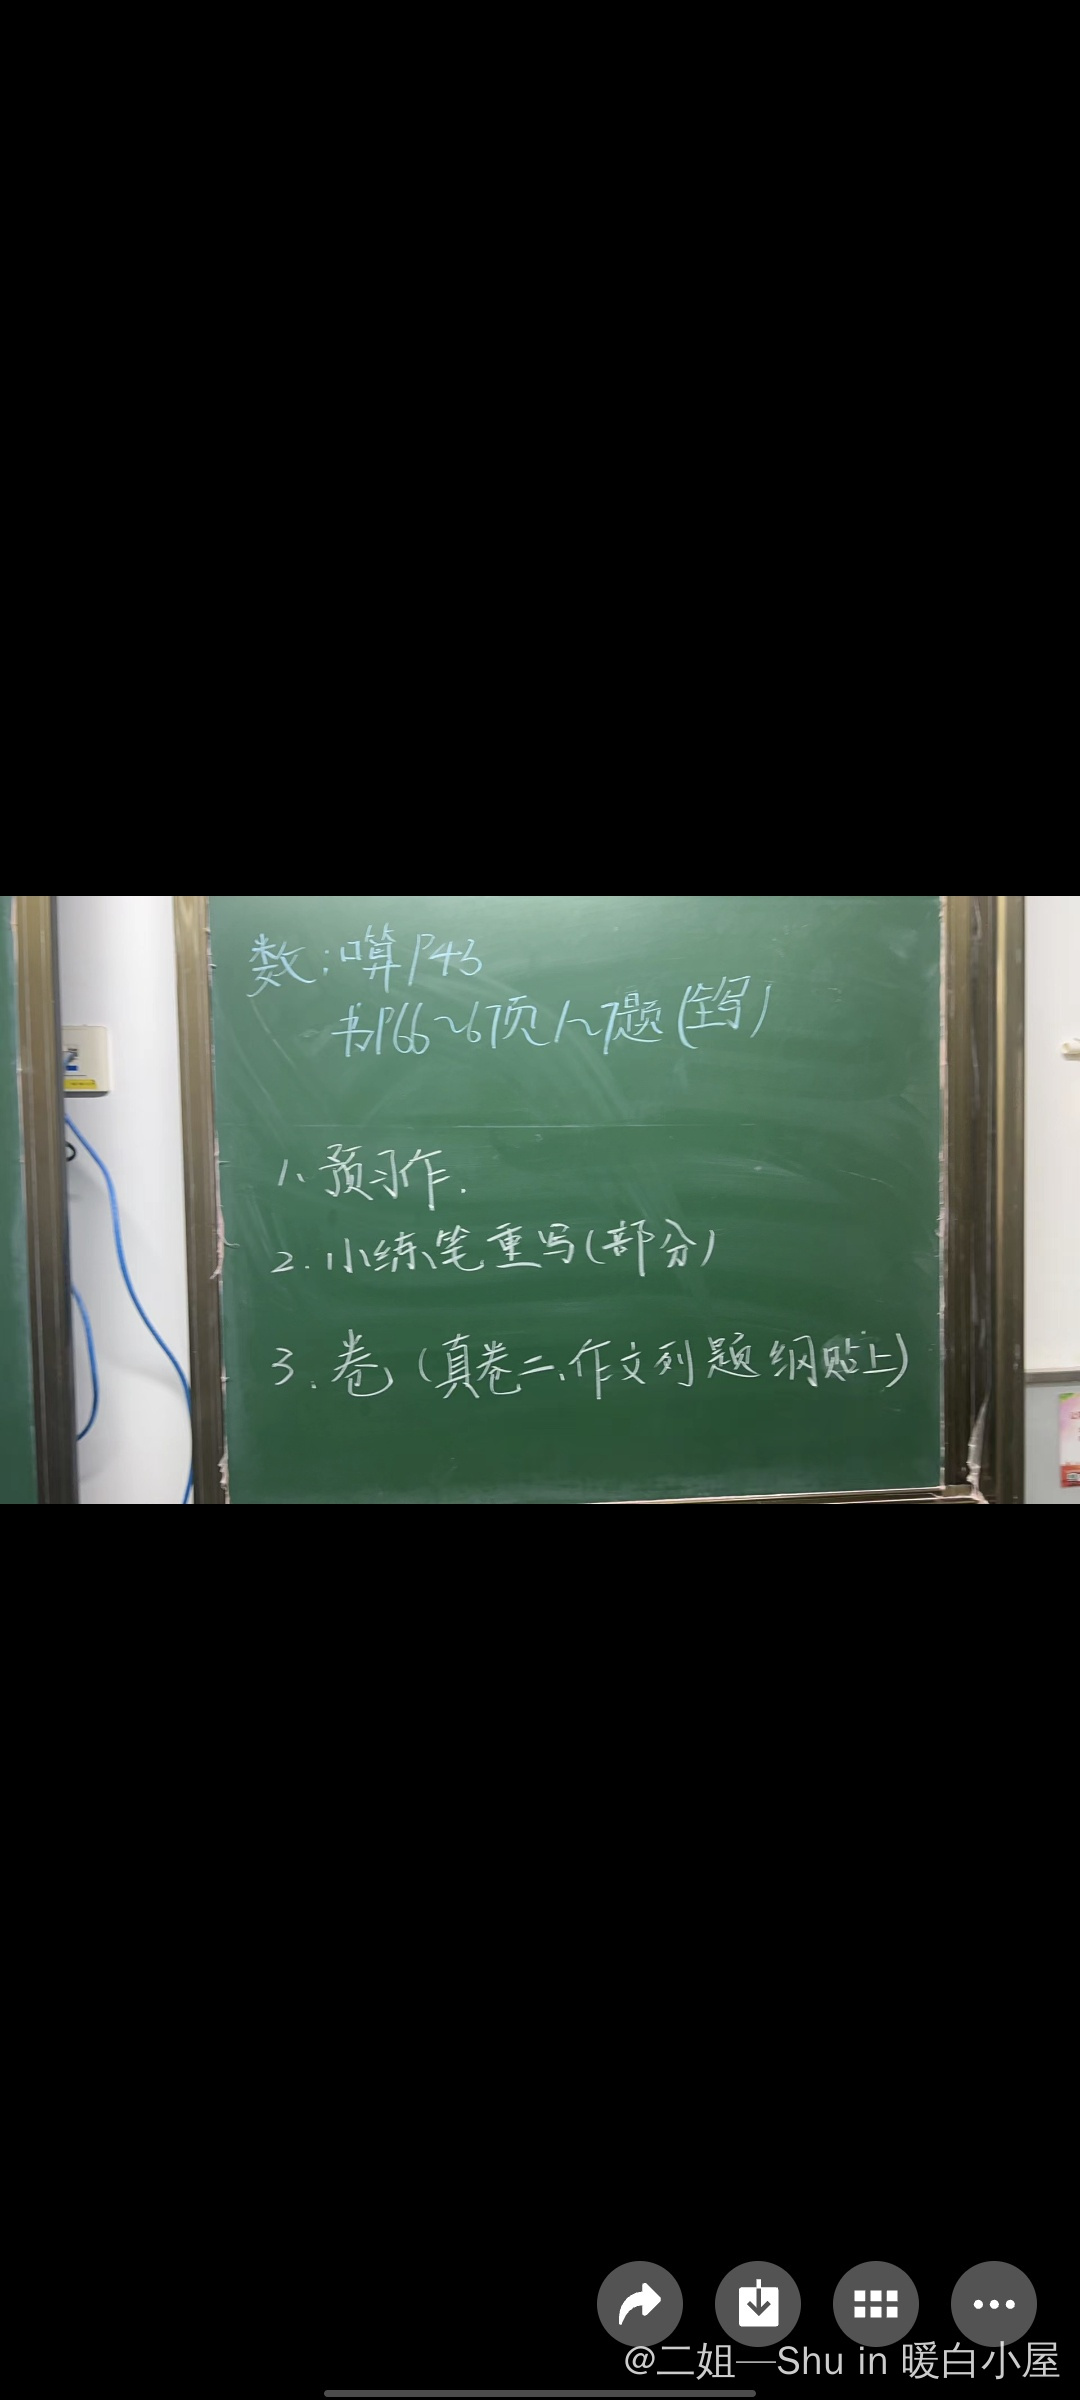 数：口算P43
书P66～67页1～7题（全写）
1、预习作．
2．小练笔重写（部分）
3．卷（真卷二、作文列题纲贴上）
@二姐—Shu in 暖白小屋